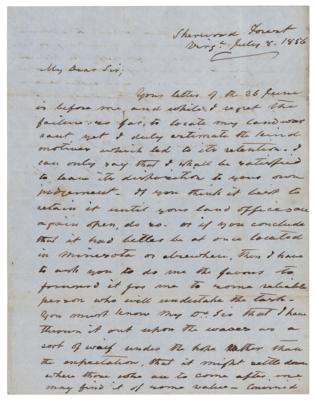 Sherwood Forest
Virga. July 8. 1856
My Dear Sir;
Your letter of the 26 June
is before me, and while I regret the
failure so far, to locate my land war
rant yet I duly estimate the kind
motives which led to its retention. I
can only say that I shall be satisfied
to leave its disposition to your own
judgement. If you think it best to
retain it until your land offices are
again open, do so. or if you conclude
that it had better be at once located
in Minnesota or elsewhere, then I have
to ask you to do me the favour to
forward it for me to some reliable
person who will undertake the task.
You must know My Dr Sir that I have
thrown it out upon the waves as a
sort of waif under the hope rather than
the expectation, that it might settle down
where those who are to come after me
may find it of some value-